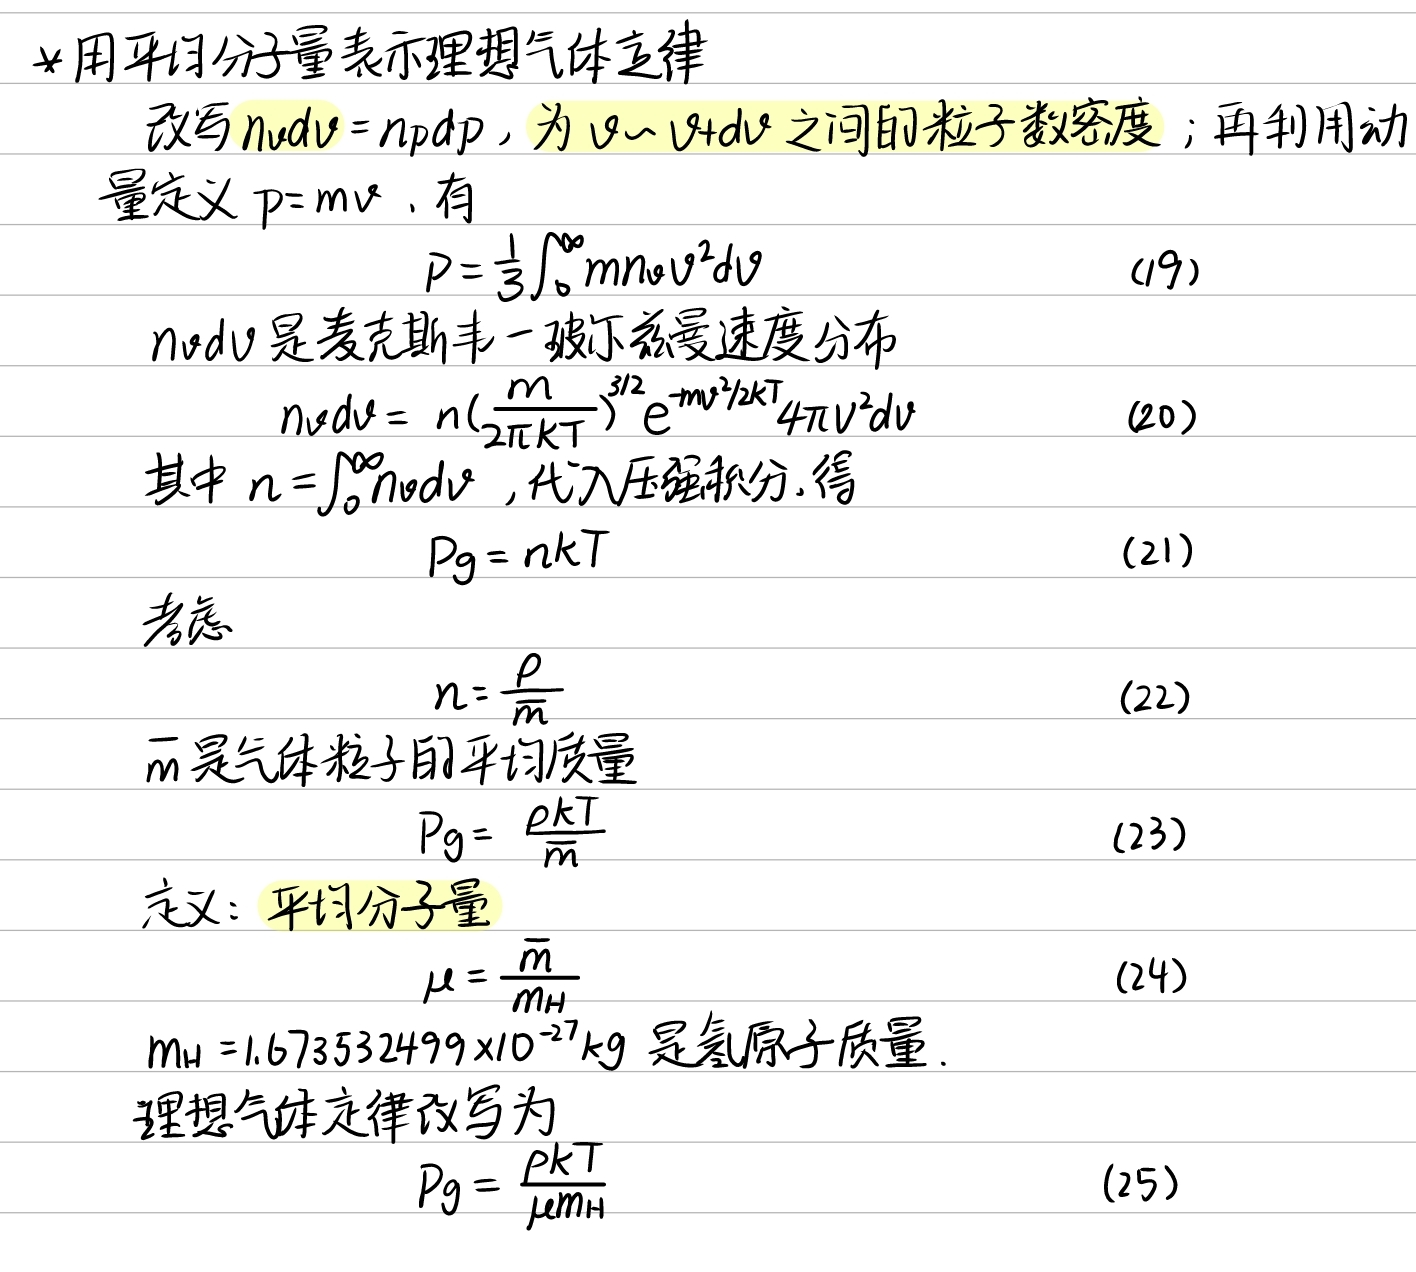 *用平均分子量表示理想气体定律
改写 nᵥdv = nₚdp, 为 v~v+dv 之间的粒子数密度；再利用动
量定义 p=mv、有
P = 1/3 ∫₀^∞ m nᵥ v² dv (19)
nᵥdv 是麦克斯韦-玻尔兹曼速度分布
nᵥdv = n(m/2πkT)^3/2 e^-mv²/2kT 4πv²dv (20)
其中 n = ∫₀^∞ nᵥdv , 代入压强积分、得
Pg = nkT (21)
考虑
n = ρ/m̄ (22)
m̄ 是气体粒子的平均质量
Pg = ρkT/m̄ (23)
定义：平均分子量
μ = m̄/mH (24)
mH = 1.673532499×10⁻²⁷kg 是氢原子质量.
理想气体定律改写为
Pg = ρkT/μmH (25)